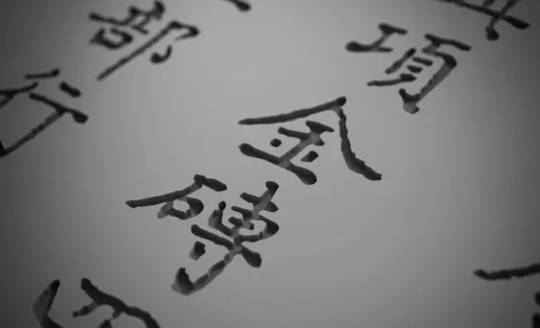 項金磚
部行